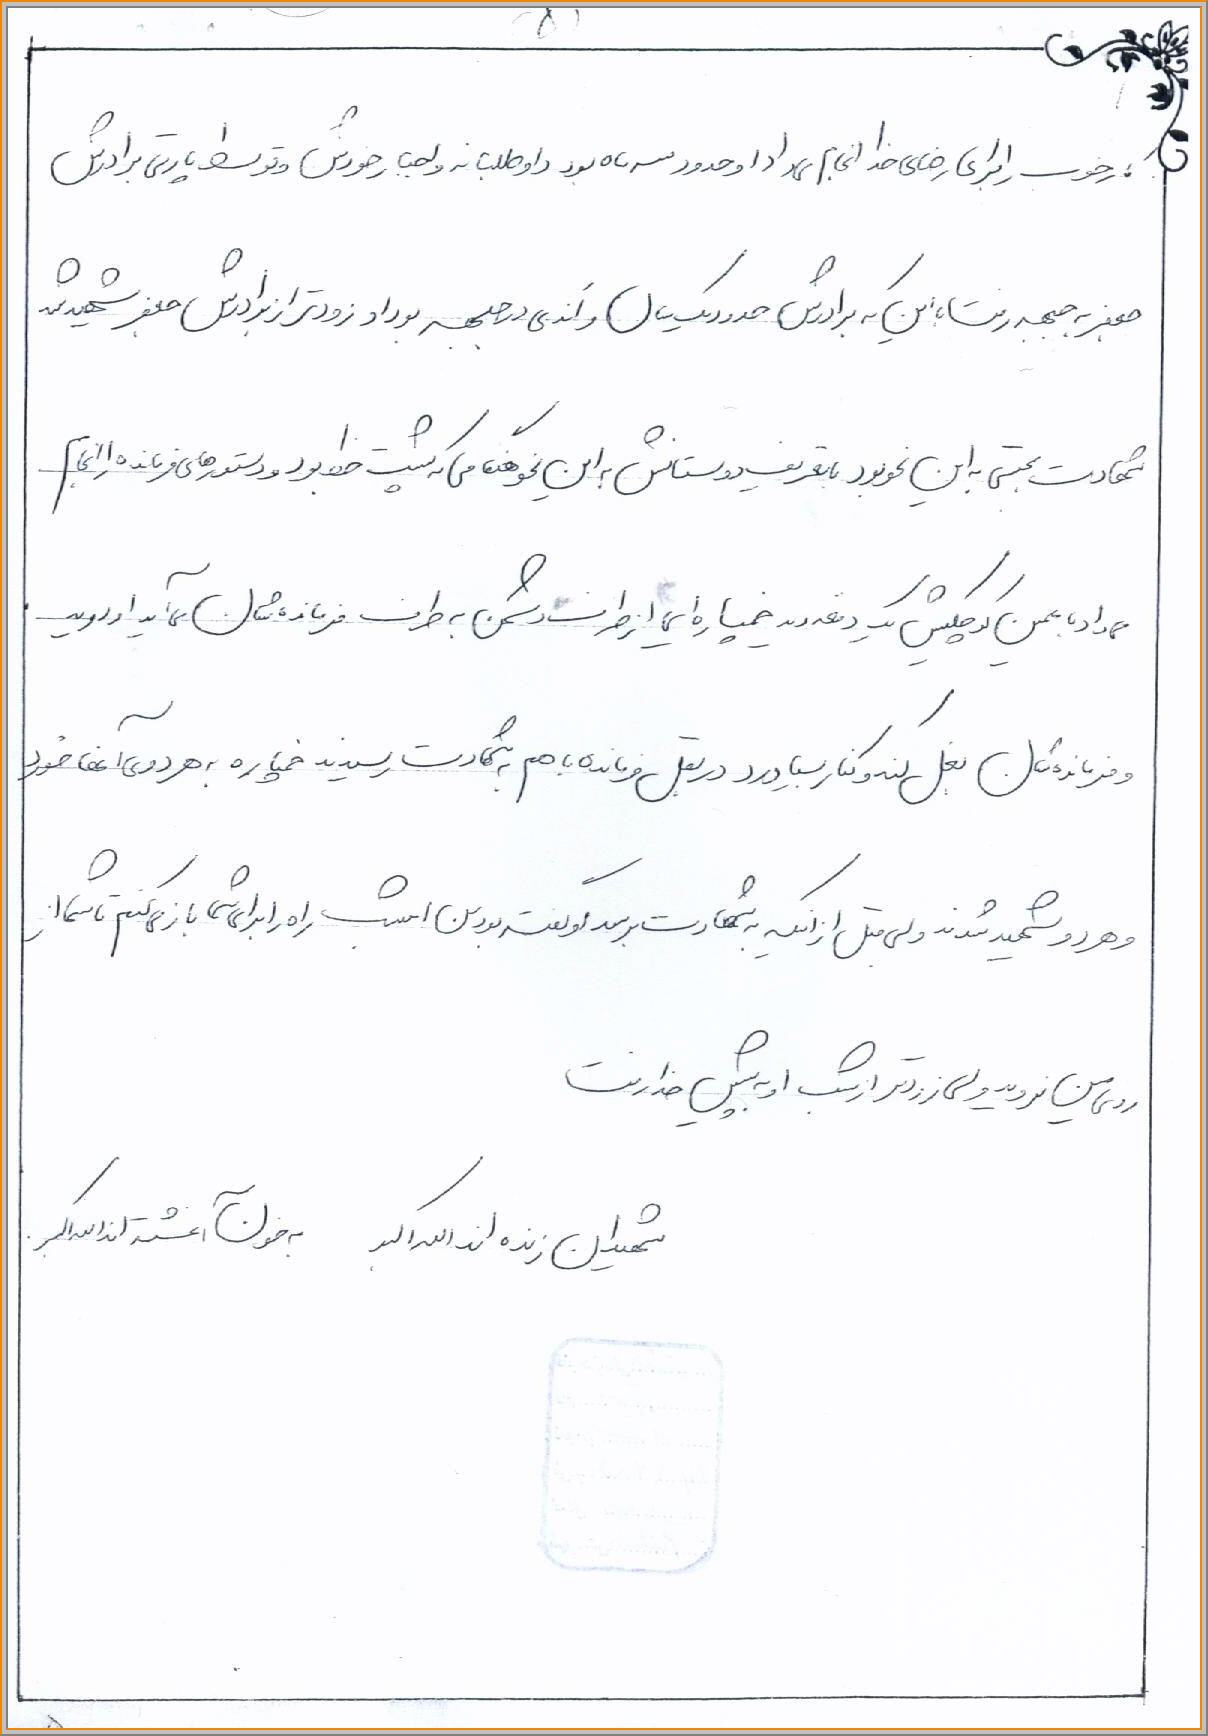 (۵)
کار خوب را برای رضای خدا انجام می‌داد او حدود سه ماه بود داوطلبانه و اجبار خودش و توسط پارتی برادرش
جعفر به جبهه رفت با این که برادرش حدود یک سال و اندی در جبهه بود او زودتر از برادرش جعفر شهید شد
شهادت مجتبی به این نحو بود با تعریف دوستانش به این نحو هنگامی که پشت خط بود و دستورهای فرمانده را انجام
می‌داد با همین کوچکیش یک دفعه دید خمپاره‌ای از طرف دشمن به طرف فرمانده‌شان می‌آید او دوید
و فرمانده‌شان بغل کند و کنار بیاورد در بغل فرمانده با هم به شهادت رسیدند خمپاره به هر دوی آنها خورد
و هر دو شهید شدند ولی قبل از اینکه به شهادت برسد او گفته بود من امشب راه را برای شما باز می‌کنم تا شما از
روی مین نروید ولی زودتر از شب او به پیش خدا رفت
شهیدان زنده‌اند الله اکبر به خون آغشته‌اند الله اکبر.